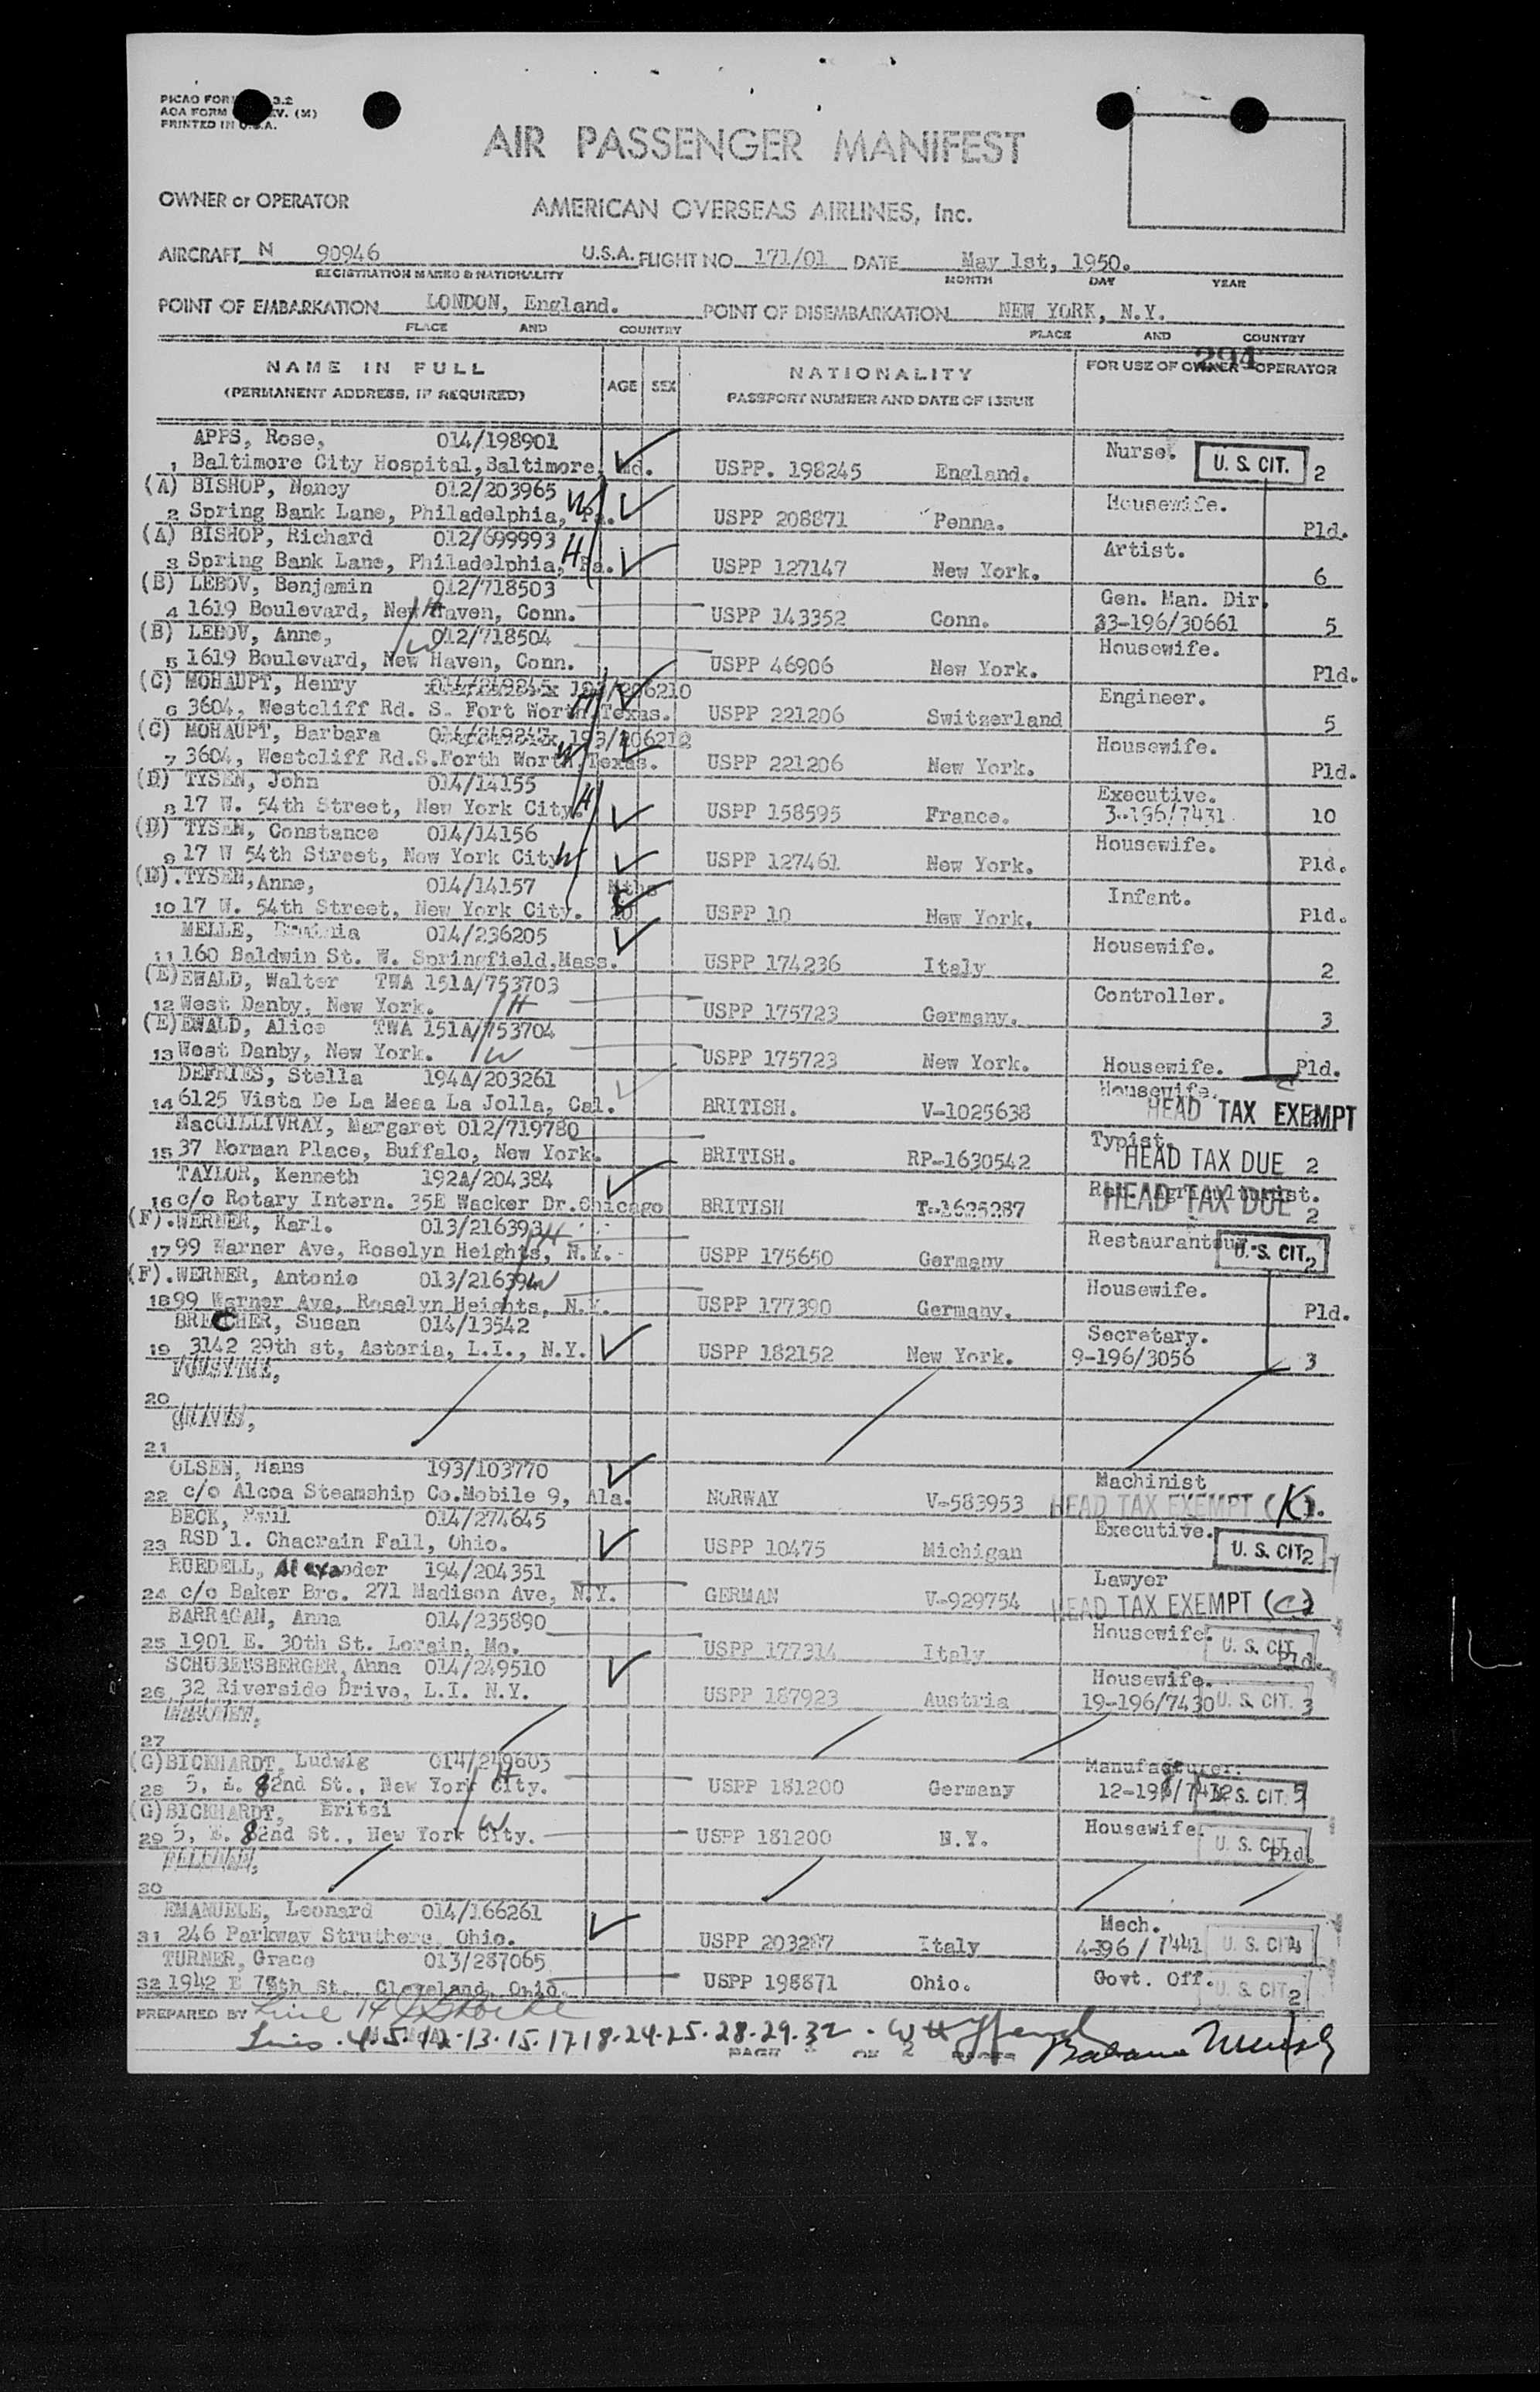 PICAO FORM 3.2
AOA FORM REV. (M)
PRINTED IN U.S.A.
AIR PASSENGER MANIFEST
OWNER or OPERATOR AMERICAN OVERSEAS AIRLINES, Inc.
AIRCRAFT N 90946 U.S.A. FLIGHT NO. 171/01 DATE May 1st, 1950.
REGISTRATION MARKS & NATIONALITY MONTH DAY YEAR
POINT OF EMBARKATION LONDON, England. POINT OF DISEMBARKATION NEW YORK, N.Y.
PLACE AND COUNTRY PLACE AND COUNTRY
294
NAME IN FULL AGE SEX NATIONALITY FOR USE OF OWNER OPERATOR
(PERMANENT ADDRESS, IF REQUIRED) PASSPORT NUMBER AND DATE OF ISSUE
APPS, Rose, 014/198901 Nurse. U. S. CIT.
1 Baltimore City Hospital, Baltimore, Md. USPP. 198245 England. 2
(A) BISHOP, Nancy 012/203965 W Housewife.
2 Spring Bank Lane, Philadelphia, Pa. USPP 208871 Penna. Pld.
(A) BISHOP, Richard 012/699993 H Artist.
3 Spring Bank Lane, Philadelphia, Pa. USPP 127147 New York. 6
(B) LEBOV, Benjamin 012/718503 Gen. Man. Dir.
4 1619 Boulevard, New Haven, Conn. H USPP 143352 Conn. 33-196/30661 5
(B) LEBOV, Anne, 012/718504 W Housewife.
5 1619 Boulevard, New Haven, Conn. USPP 46906 New York. Pld.
(C) MOHAUPT, Henry 193/206210 H Engineer.
6 3604, Westcliff Rd. S. Fort Worth, Texas. USPP 221206 Switzerland 5
(C) MOHAUPT, Barbara 193/206212 W Housewife.
7 3604, Westcliff Rd.S.Forth Worth, Texas. USPP 221206 New York. Pld.
(D) TYSEN, John 014/14155 Executive.
8 17 W. 54th Street, New York City. H USPP 158595 France. 3-196/7431 10
(D) TYSEN, Constance 014/14156 Housewife.
9 17 W 54th Street, New York City W USPP 127461 New York. Pld.
(D). TYSEN, Anne, 014/14157 Mths Infant.
10 17 W. 54th Street, New York City. 10 USPP 10 New York. Pld.
MELLE, 014/236205 Housewife.
11 160 Baldwin St. W. Springfield, Mass. USPP 174236 Italy 2
(E) EWALD, Walter TWA 151A/753703 Controller.
12 West Danby, New York. H USPP 175723 Germany. 3
(E) EWALD, Alice TWA 151A/753704
13 West Danby, New York. W USPP 175723 New York. Housewife. Pld.
DEFRIES, Stella 194A/203261 Housewife. C
14 6125 Vista De La Mesa La Jolla, Cal. BRITISH. V-1025638 HEAD TAX EXEMPT
MacGILLIVRAY, Margaret 012/719780 Typist.
15 37 Norman Place, Buffalo, New York. BRITISH. RP-1630542 HEAD TAX DUE 2
TAYLOR, Kenneth 192A/204384 Ret. Agriculturist.
16 c/o Rotary Intern. 35E Wacker Dr. Chicago BRITISH T-1625287 HEAD TAX DUE 2
(F). WERNER, Karl. 013/216393 H Restaurant
17 99 Warner Ave, Roselyn Heights, N.Y. USPP 175650 Germany U. S. CIT. 2
(F). WERNER, Antonie 013/216394 W Housewife.
18 99 Warner Ave, Roselyn Heights, N.Y. USPP 177390 Germany. Pld.
BRECHER, Susan 014/13542 Secretary.
19 3142 29th st, Astoria, L.I., N.Y. USPP 182152 New York. 9-196/3056 3
20
21
OLSEN, Hans 193/103770 Machinist
22 c/o Alcoa Steamship Co. Mobile 9, Ala. NORWAY V-583953 HEAD TAX EXEMPT (K).
BECK, 014/274645 Executive.
23 RSD 1. Chacrain Fall, Ohio. USPP 10475 Michigan U. S. CIT 2
RUEDELL, Alexander 194/204351 Lawyer
24 c/o Baker Bro. 271 Madison Ave, N.Y. GERMAN V-929754 HEAD TAX EXEMPT (C)
BARRAGAN, Anna 014/235890 Housewife.
25 1901 E. 30th St. Lorain, Mo. USPP 177314 Italy U. S. CIT. Pld.
SCHUBERSBERGER, Anna 014/249510 Housewife.
26 32 Riverside Drive, L.I. N.Y. USPP 187923 Austria 19-196/7430 U. S. CIT. 3
27
(G) BICKHARDT, Ludwig 014/249603 Manufacturer.
28 5, E. 82nd St., New York City. H USPP 181200 Germany 12-196/7432 U. S. CIT. 5
(G) BICKHARDT, Britsi Housewife.
29 5, E. 82nd St., New York City. W USPP 181200 N.Y. U. S. CIT. Pld.
30
EMANUELE, Leonard 014/166261 Mech.
31 246 Parkway Struthers, Ohio. USPP 203287 Italy 4-396/7441 U. S. CIT. 4
TURNER, Grace 013/287065 Govt. Off.
32 1942 E 78th St. Cleveland, Ohio. USPP 198871 Ohio. U. S. CIT. 2
PREPARED BY
Lines. 4.5.12.13.15.17.18.24.25.28.29.32.
PAGE OF 2 PAGES